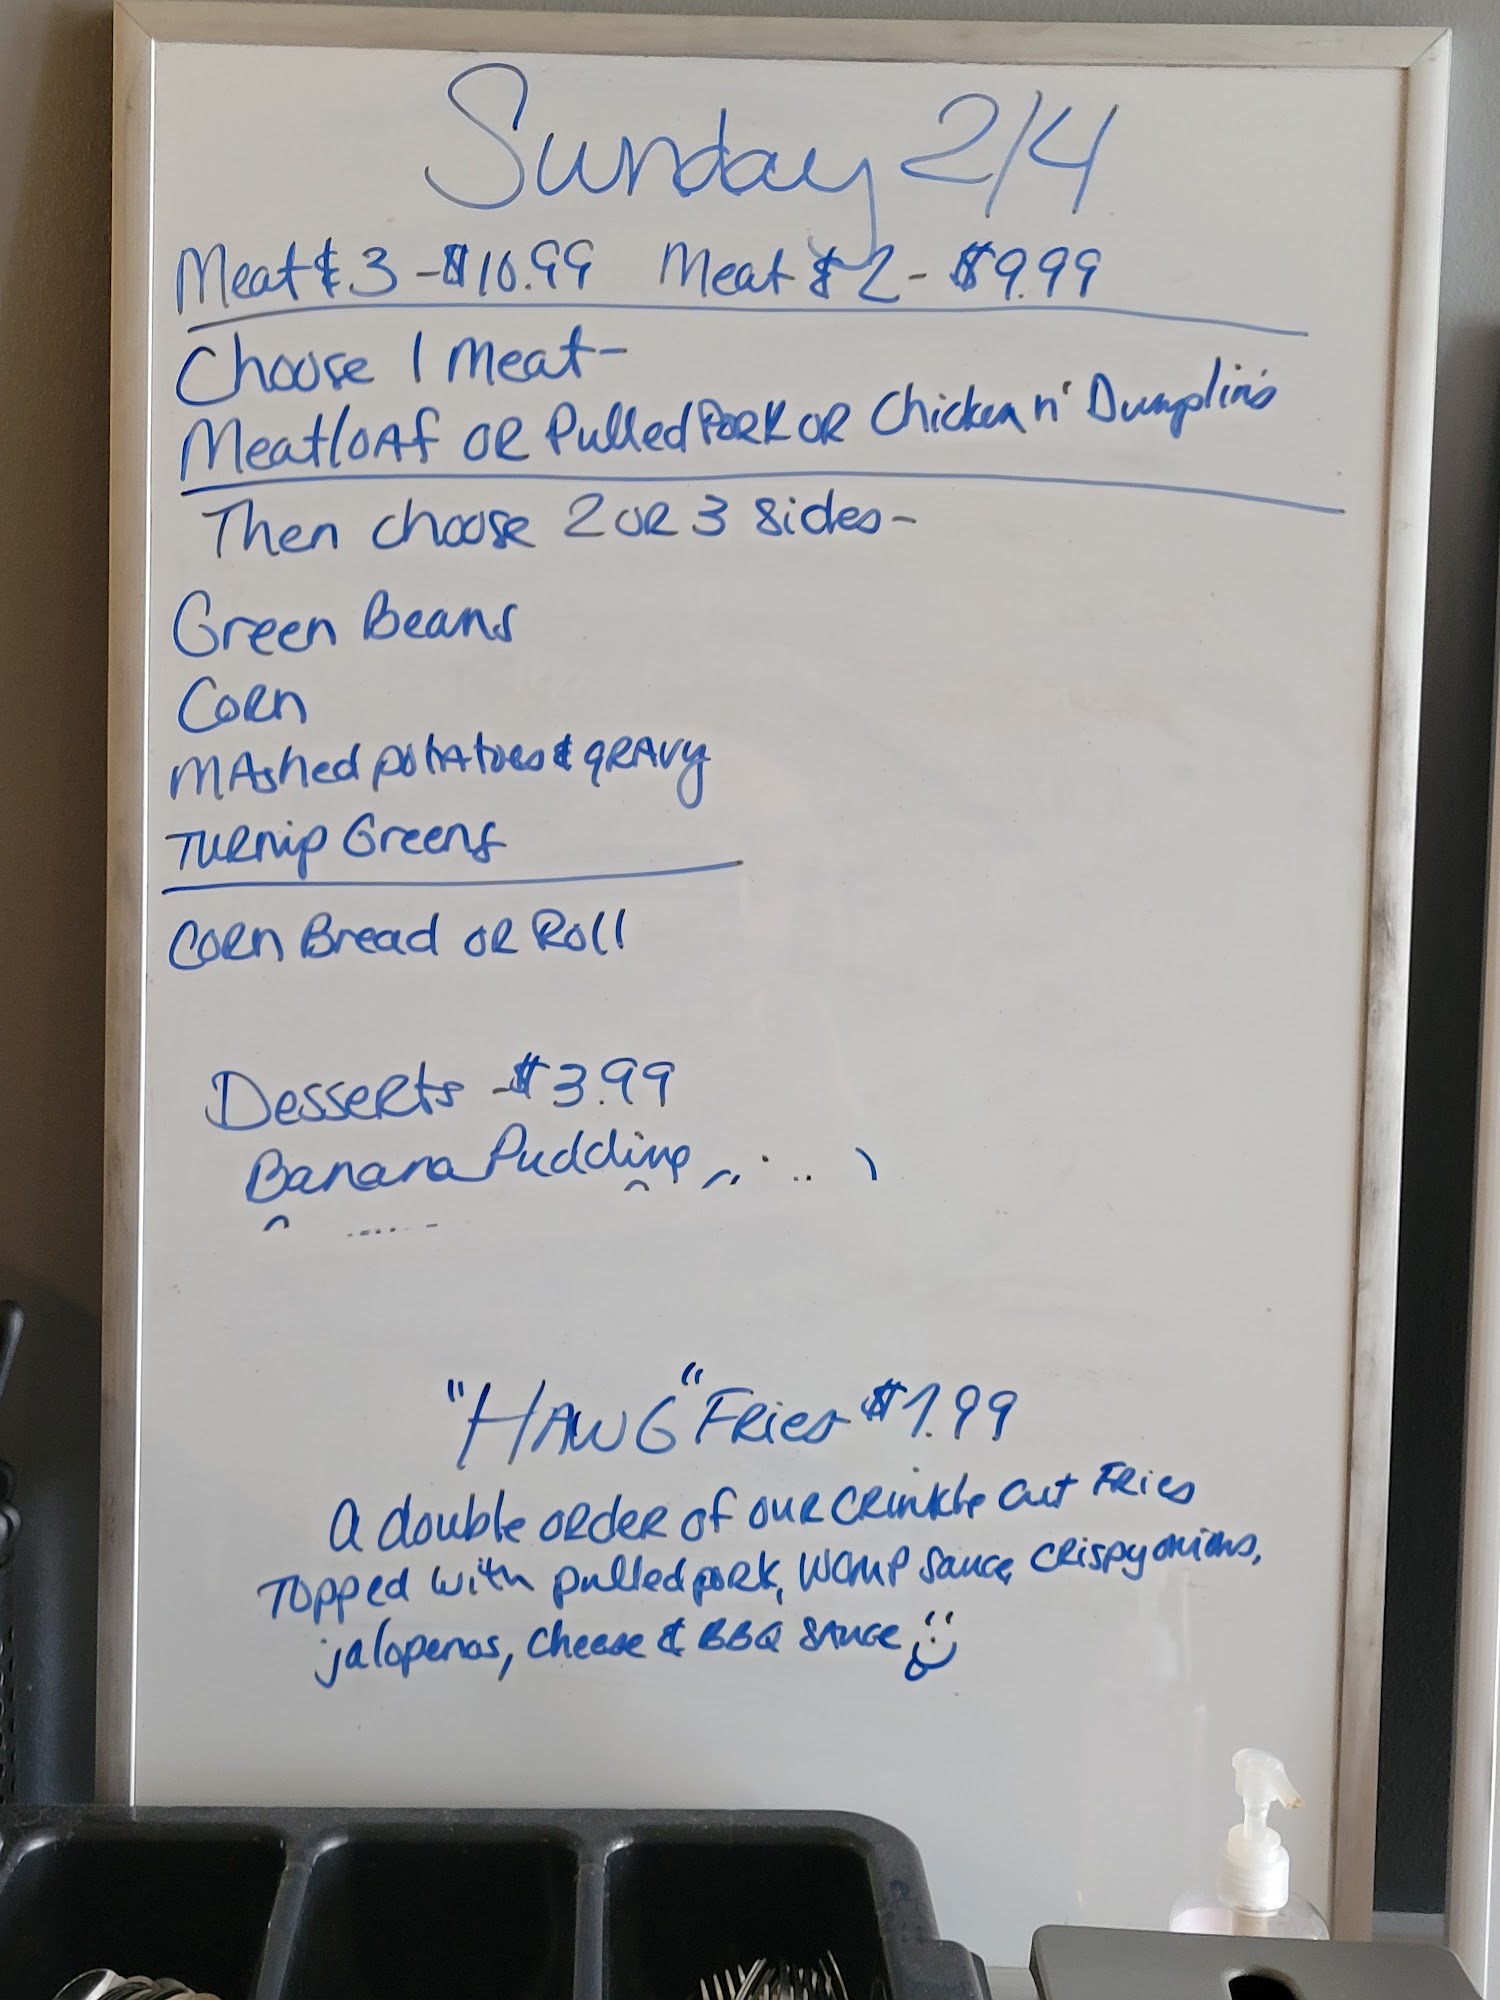 Sunday 2/4
Meat & 3 - $10.99 Meat & 2 - $9.99
Choose 1 Meat-
Meatloaf OR Pulled Pork OR Chicken n' Dumplins
Then choose 2 OR 3 sides-
Green Beans
Corn
Mashed potatoes & gravy
Turnip Greens
Corn Bread OR Roll
Desserts - $3.99
Banana Pudding
"HAWG" Fries $7.99
A double order of our crinkle cut Fries
Topped with pulled pork, WOMP sauce, crispy onions,
jalapenos, cheese & BBQ sauce